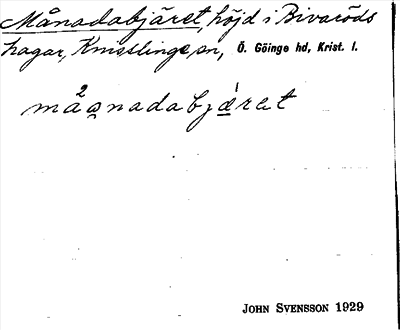 Månadabjäret, höjd i Bivaröds
hagar, Knisslinge sn, Ö. Göinge hd, Krist. l.
må²a̰nadabjǽrat
JOHN SVENSSON 1929